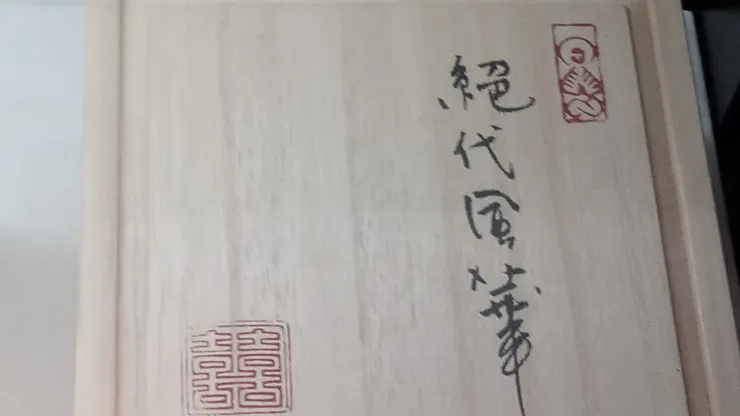 絕代風華
囍